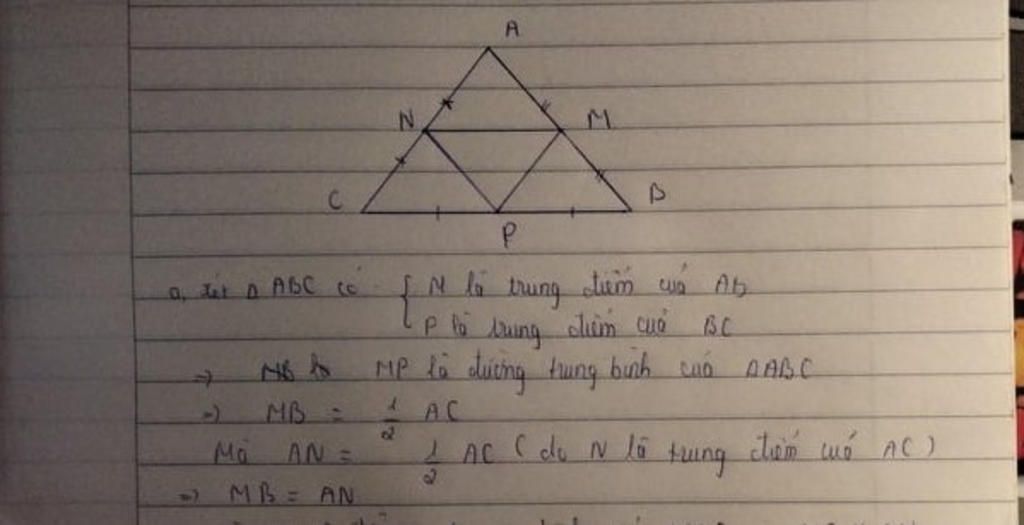 A
N M
C B
P
a, Xét Δ ABC có { M là trung điểm của AB
P là trung điểm của BC
=> MP là đường trung bình của ΔABC
=> MB = 1/2 AC
Mà AN = 1/2 AC ( do N là trung điểm của AC )
=> MB = AN